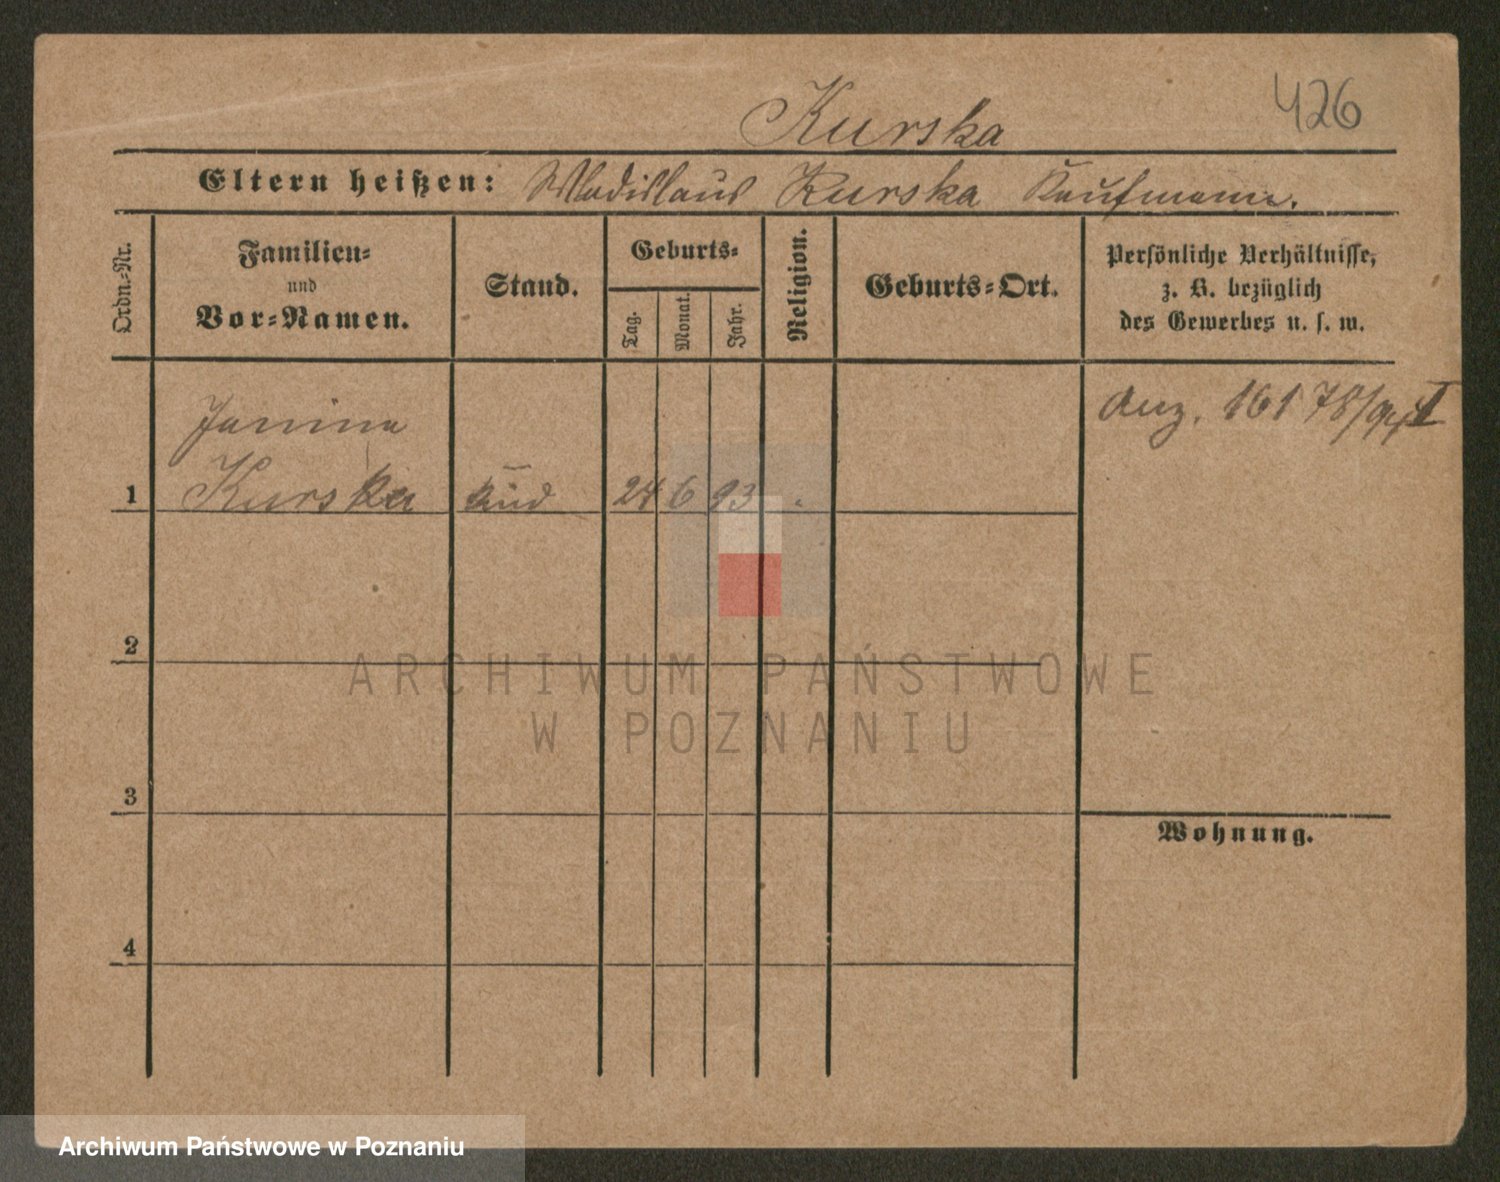 426
Kurska
Eltern heißen: Wladislaus Kurska Kaufmann.
Ordn.-Nr.
Familien-
und
Vor-Namen.
Stand.
Geburts-
Tag.
Monat.
Jahr.
Religion.
Geburts-Ort.
Persönliche Verhältnisse,
z. B. bezüglich
des Gewerbes u. s. w.
Janina
Anz. 16178/
1 Kurska Kind 24 6 93
2
ARCHIWUM PAŃSTWOWE
W POZNANIU
3
Wohnung.
4
Archiwum Państwowe w Poznaniu